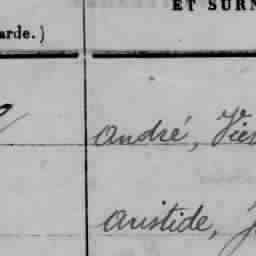 ET SURN
arde.)
André, Vic
Aristide, J